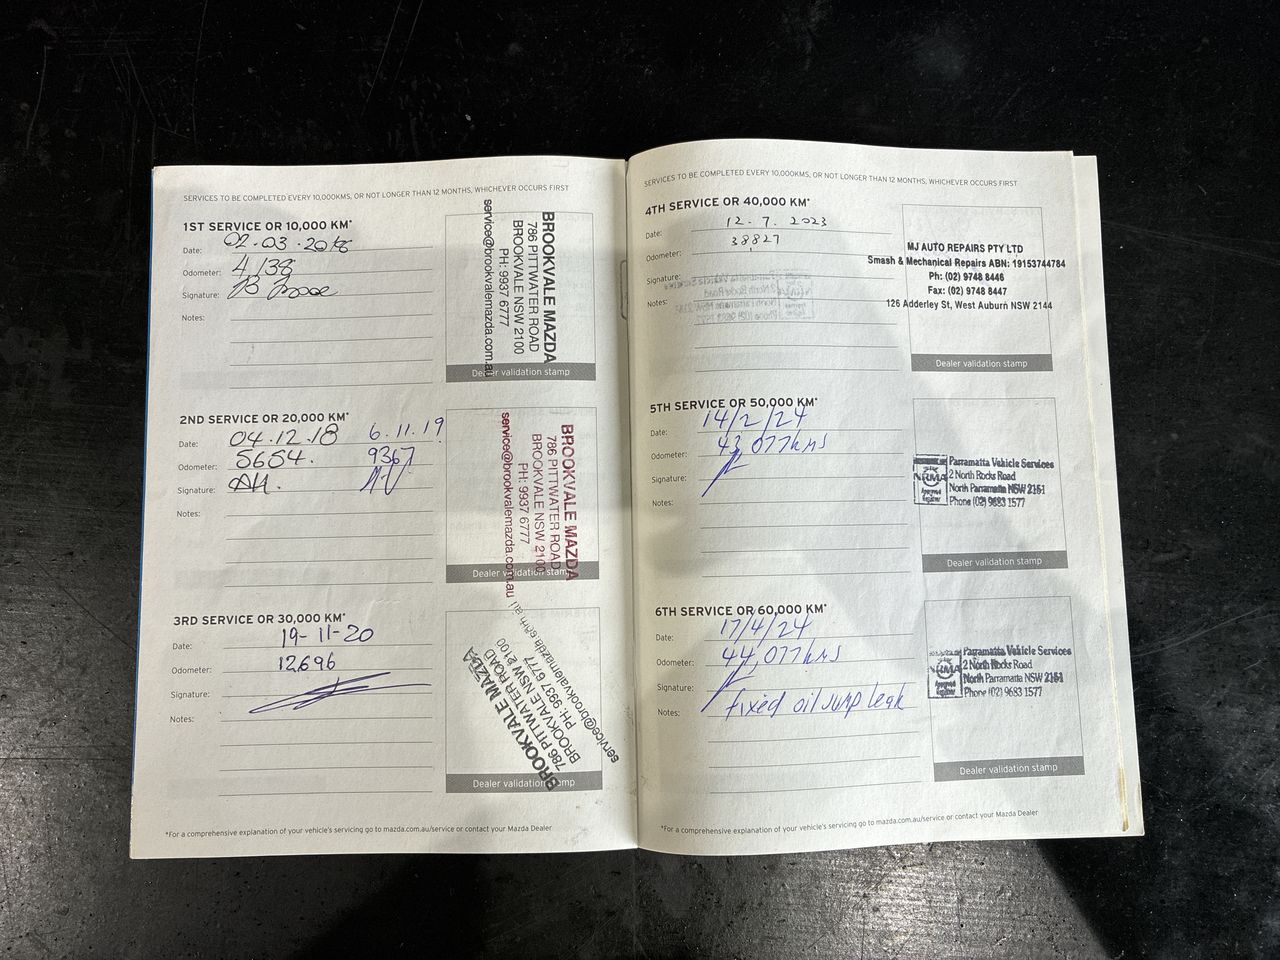 SERVICES TO BE COMPLETED EVERY 10,000KMS, OR NOT LONGER THAN 12 MONTHS, WHICHEVER OCCURS FIRST
1ST SERVICE OR 10,000 KM*
Date: 02.03.2018
Odometer: 4,138
Signature:
Notes:
BROOKVALE MAZDA
786 PITTWATER ROAD
BROOKVALE NSW 2100
PH: 9937 6777
service@brookvalemazda.com.au
Dealer validation stamp
2ND SERVICE OR 20,000 KM*
Date: 04.12.18 6.11.19
Odometer: 5654. 9367
Signature:
Notes:
BROOKVALE MAZDA
786 PITTWATER ROAD
BROOKVALE NSW 2100
PH: 9937 6777
service@brookvalemazda.com.au
Dealer validation stamp
3RD SERVICE OR 30,000 KM*
Date: 19-11-20
Odometer: 12696
Signature:
Notes:
BROOKVALE MAZDA
786 PITTWATER ROAD
BROOKVALE NSW 2100
PH: 9937 6777
service@brookvalemazda.com.au
Dealer validation stamp
*For a comprehensive explanation of your vehicle's servicing go to mazda.com.au/service or contact your Mazda Dealer
SERVICES TO BE COMPLETED EVERY 10,000KMS, OR NOT LONGER THAN 12 MONTHS, WHICHEVER OCCURS FIRST
4TH SERVICE OR 40,000 KM*
Date: 12.7.2023
Odometer: 38827
Signature:
Notes:
MJ AUTO REPAIRS PTY LTD
Smash & Mechanical Repairs ABN: 19153744784
Ph: (02) 9748 8446
Fax: (02) 9748 8447
126 Adderley St, West Auburn NSW 2144
Dealer validation stamp
5TH SERVICE OR 50,000 KM*
Date: 14/2/24
Odometer: 43,077kms
Signature:
Notes:
NRMA
Parramatta Vehicle Services
2 North Rocks Road
North Parramatta NSW 2151
Phone (02) 9683 1577
Dealer validation stamp
6TH SERVICE OR 60,000 KM*
Date: 17/4/24
Odometer: 44,077kms
Signature:
Notes: fixed oil sump leak
NRMA
Parramatta Vehicle Services
2 North Rocks Road
North Parramatta NSW 2151
Phone (02) 9683 1577
Dealer validation stamp
*For a comprehensive explanation of your vehicle's servicing go to mazda.com.au/service or contact your Mazda Dealer